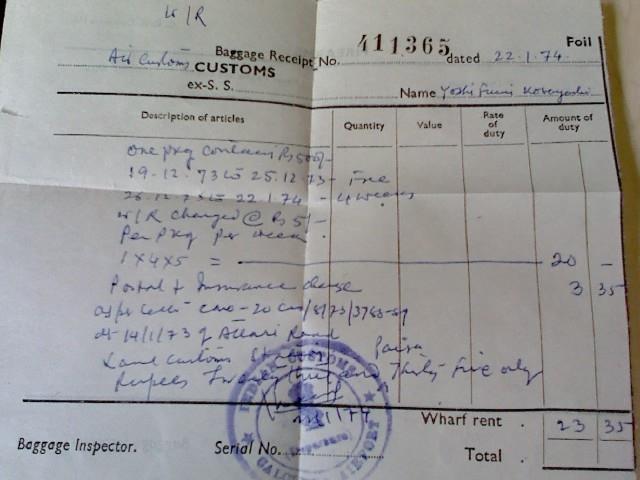 W/R
Baggage Receipt No. 411365 dated 22.1.74. Foil
Air Customs CUSTOMS
ex-S. S.
Name Yoshi Fumi Kobayashi
Description of articles Quantity Value Rate of duty Amount of duty
One pkg containing Rs 500/-
19.12.73 to 25.12.73 - Free
26.12.73 to 22.1.74 - 4 weeks
W/R charged @ Rs 5/-
Per pkg per week.
1 X 4 X 5 = 20 -
Postal & Insurance charge 3 35
as per
dt 14/1/73 of Attari Road
Land Customs Station
Rupees Twenty three and Paisa Thirty Five only
INDIAN CUSTOMS
CALCUTTA AIRPORT
22/1/74
Wharf rent . 23 35
Baggage Inspector. Serial No. Total .